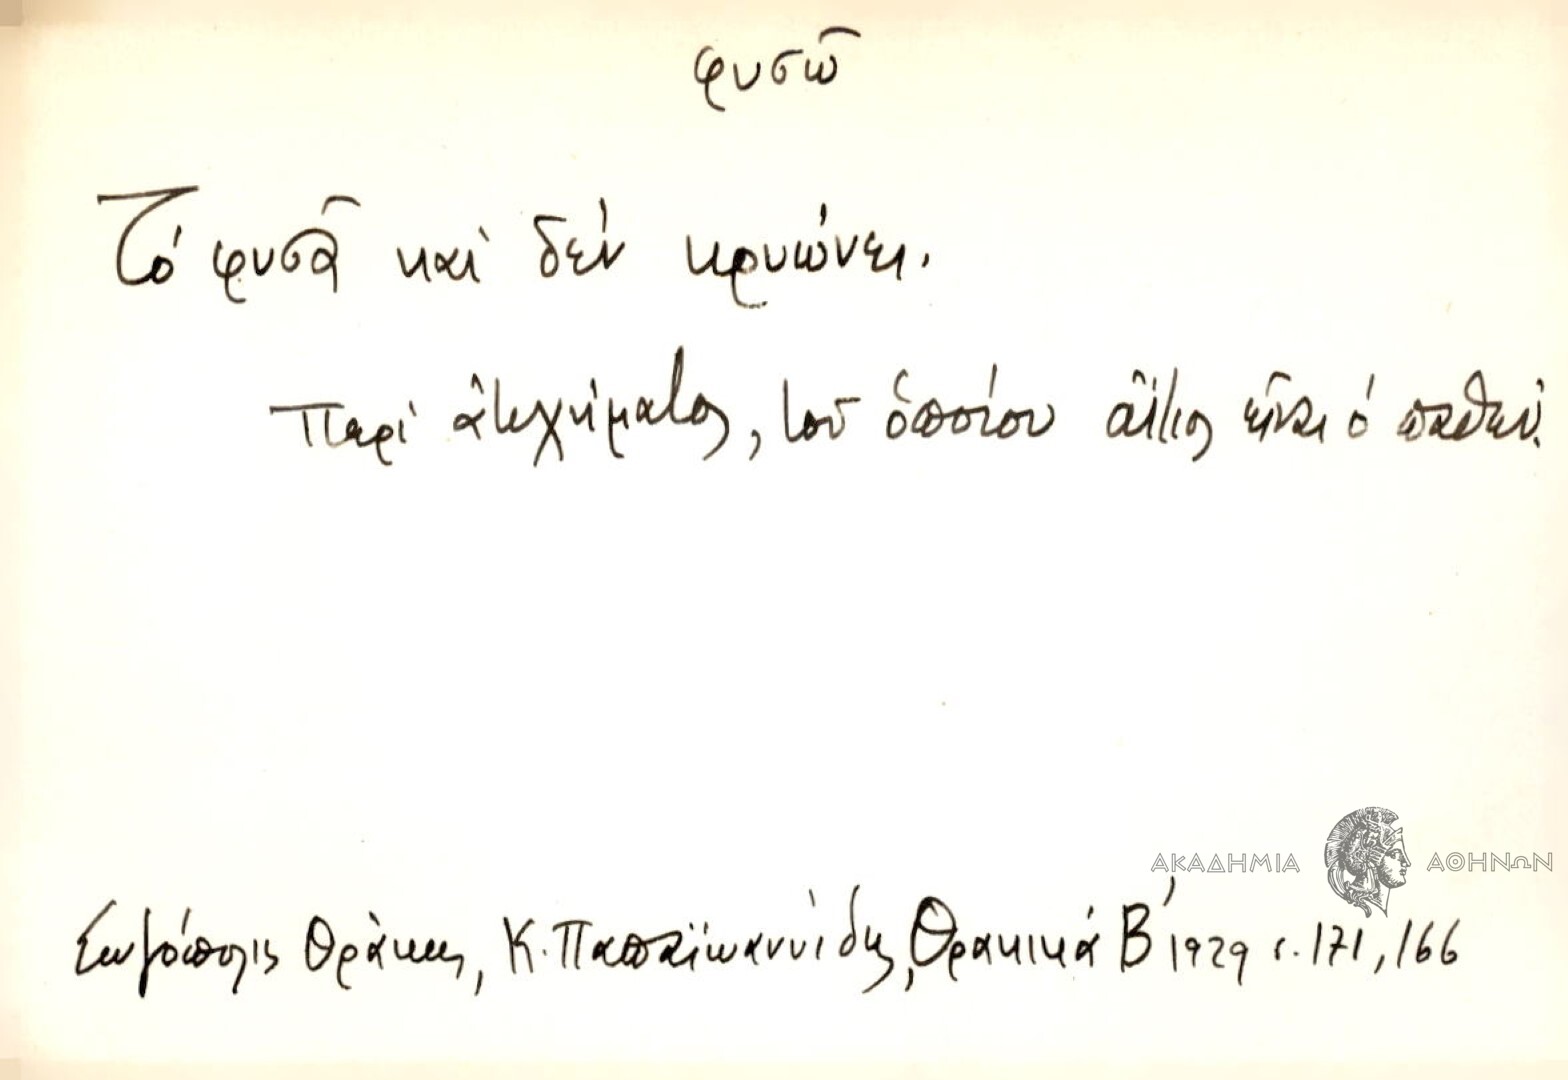 φυσῶ
Τό φυσᾶ καί δέν κρυώνει.
Περί ἀτυχήματος, τοῦ ὁποίου αἴτιος εἶναι ὁ παθών.
ΑΚΑΔΗΜΙΑ ΑΘΗΝΩΝ
Σωζόπολις Θράκης, Κ. Παπαϊωαννίδης, Θρακικά Β΄ 1929 σ. 171, 166